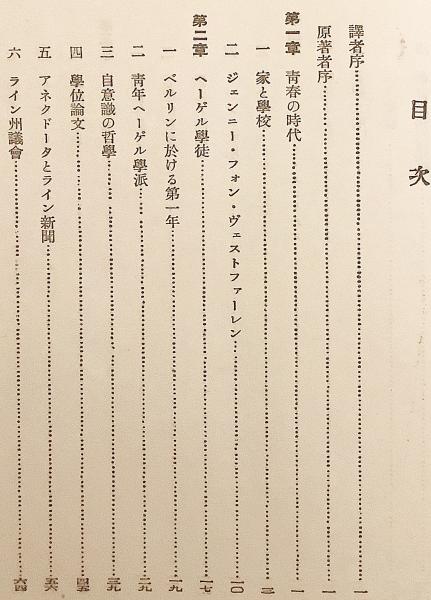 目次
譯者序……一
原著者序……一
第一章 靑春の時代……一
一 家と學校……三
二 ジェンニー・フォン・ヴェストファーレン……一〇
第二章 ヘーゲル學徒……一七
一 ベルリンに於ける第一年……一九
二 靑年ヘーゲル學派……二九
三 自意識の哲學……三九
四 學位論文……四五
五 アネクドータとライン新聞……五六
六 ライン州議會……六四